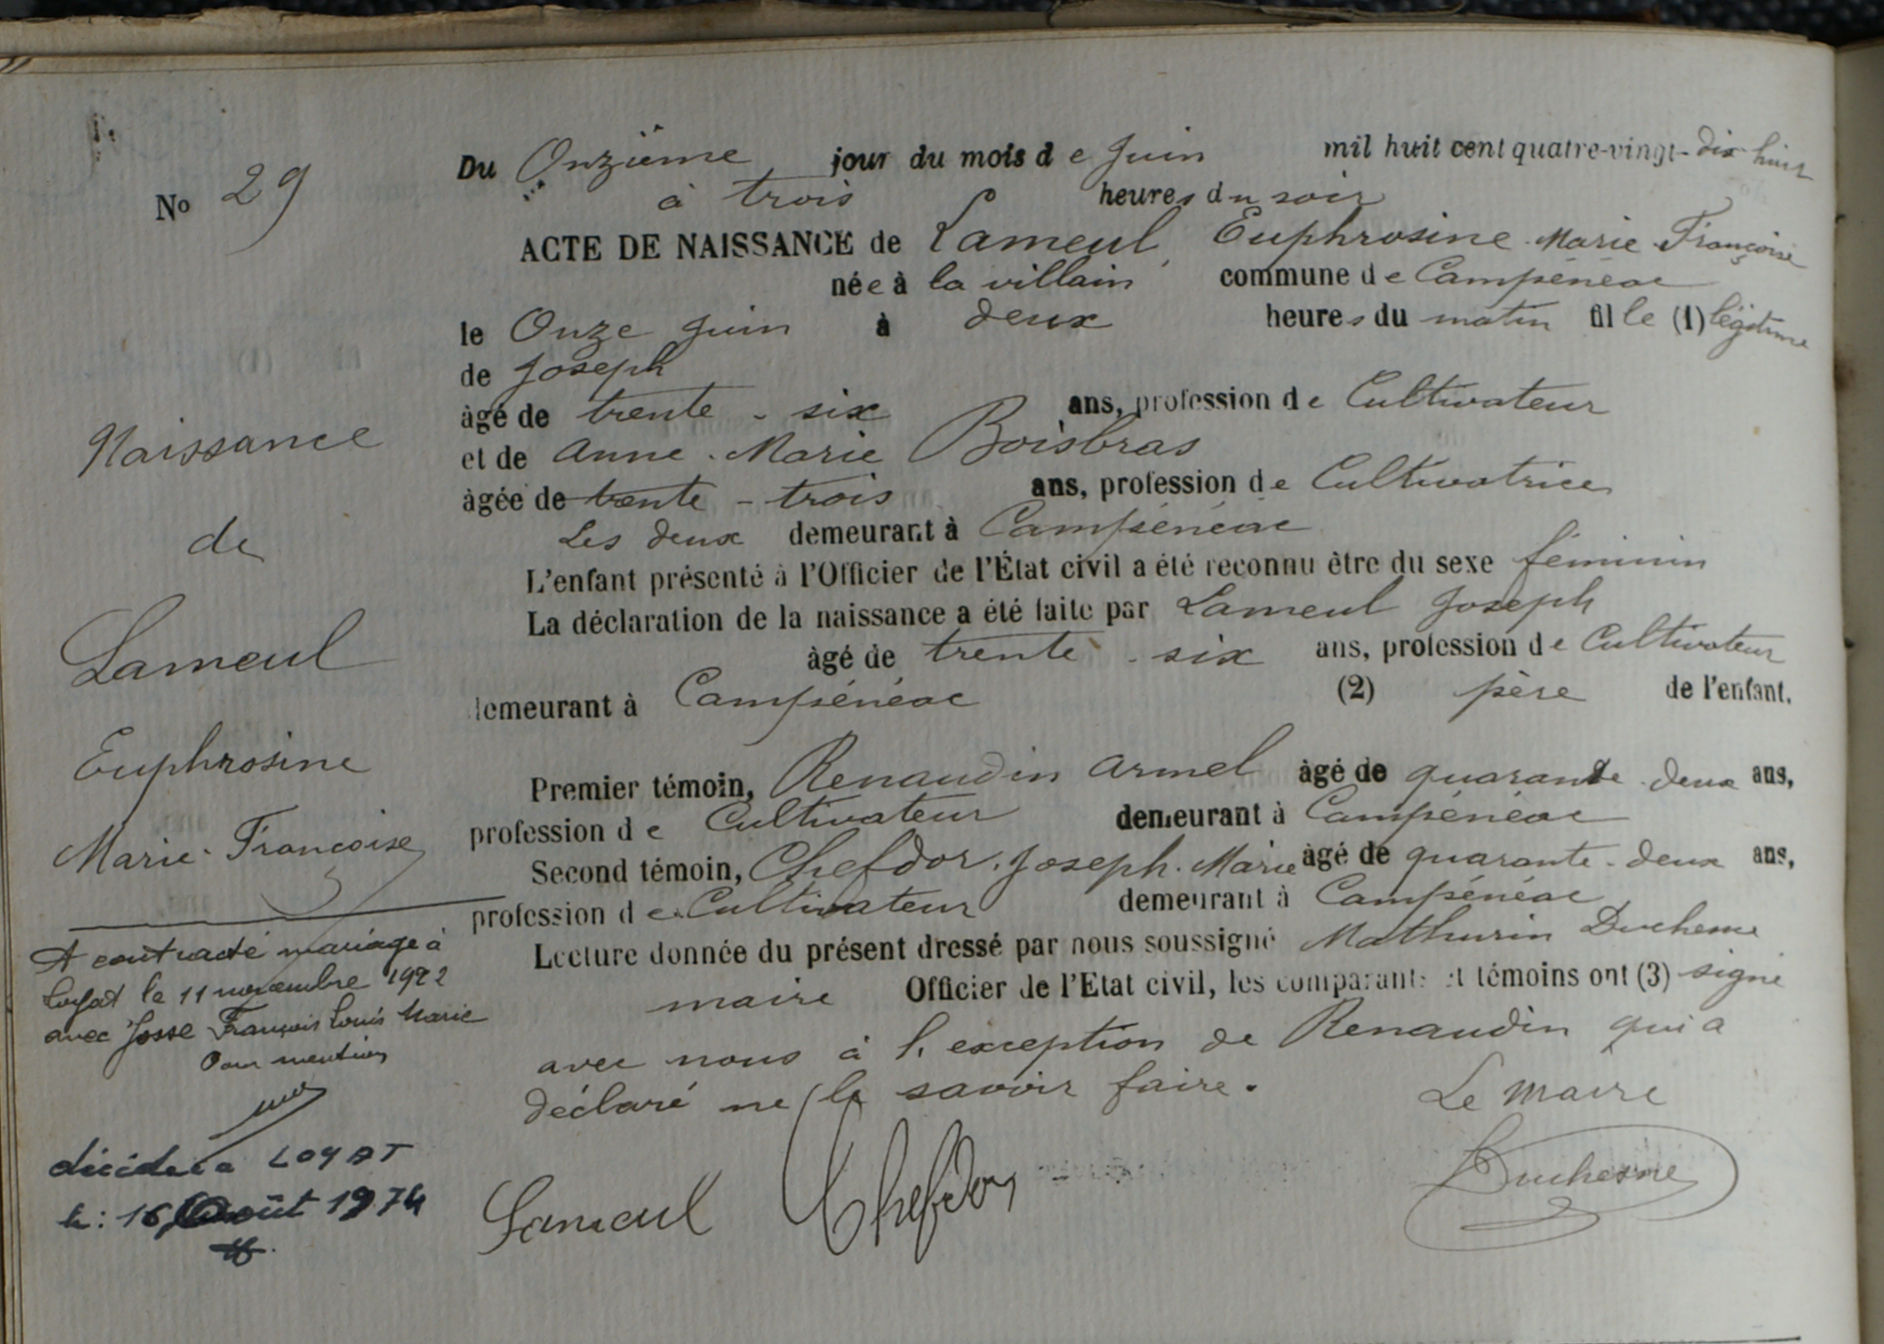 No 29
Naissance
de
Lameul
Euphrosine
Marie-Françoise
A contracté mariage à
Loyat le 11 novembre 1922
avec Josse François Louis Marie
Pour mention
décédée à LOYAT
le : 16 Août 1974
Du Onzième jour du mois de Juin mil huit cent quatre-vingt-dix huit
à trois heures du soir
ACTE DE NAISSANCE de Lameul, Euphrosine Marie Françoise
née à la villain commune de Campénéac
le Onze Juin à deux heures du matin fille (1) légitime
de Joseph
âgé de trente - six ans, profession de Cultivateur
et de Anne - Marie Boisbras
âgée de trente - trois ans, profession de Cultivatrice
Les deux demeurant à Campénéac
L'enfant présenté à l'Officier de l'État civil a été reconnu être du sexe féminin
La déclaration de la naissance a été faite par Lameul Joseph
âgé de trente - six ans, profession de Cultivateur
demeurant à Campénéac (2) père de l'enfant.
Premier témoin, Renaudin Armel âgé de quarante - deux ans,
profession de Cultivateur demeurant à Campénéac
Second témoin, Chefdor, Joseph. Marie âgé de quarante - deux ans,
profession de Cultivateur demeurant à Campénéac
Lecture donnée du présent dressé par nous soussigné Mathurin Duchesne
maire Officier de l'Etat civil, les comparants et témoins ont (3) signé
avec nous à l'exception de Renaudin qui a
déclaré ne le savoir faire.
Le Maire
Lameul Chefdor Duchesne